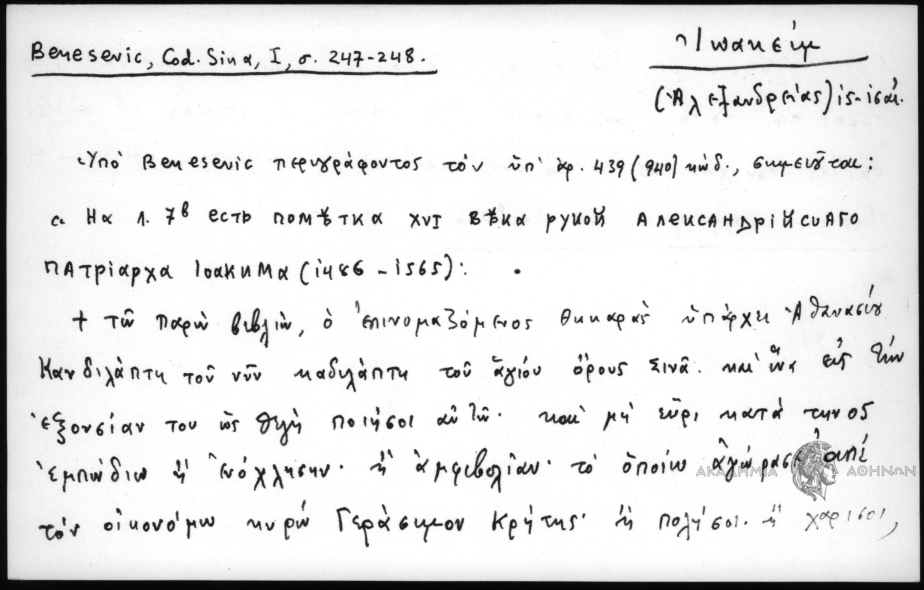 Benesevic, Cod. Sina, I, σ. 247-248.
Ἰωακείμ
(Ἀλεξανδρείας) ις-ισαι.
Ὑπό Benesevic περιγράφοντος τόν ὑπ' ἀρ. 439 (940) κώδ., σημειοῦται:
« На л. 7в есть помѣтка XVI вѣка рукой Александрійскаго
патріарха Іоакима (1486 – 1565):
+ τῶ παρὼ βιβλίω, ὁ ἐπινομαζόμενος θηκαρὰς ὑπάρχει Ἀθανασίου
Κανδιλάπτη τοῦ νῦν καδιλάπτη τοῦ ἁγίου ὄρους Σινᾶ. καὶ ἵνα εἰς τὴν
ἐξουσίαν του ὡς θέλη ποιήσοι αὐτῶ· καὶ μὴ εὕρι κατά τηνος
ἐμπώδιω ἢ ἐνόχλησην· ἢ ἀμφιβολίαν· τὸ ὁποίω ἀγώρασε ἀπέ
τὸν οἰκονόμω κυρώ Γεράσιμον Κρήτης· ἢ πολήσοι· ἢ χαρίσοι,
ΑΚΑΔΗΜΙΑ ΑΘΗΝΩΝ